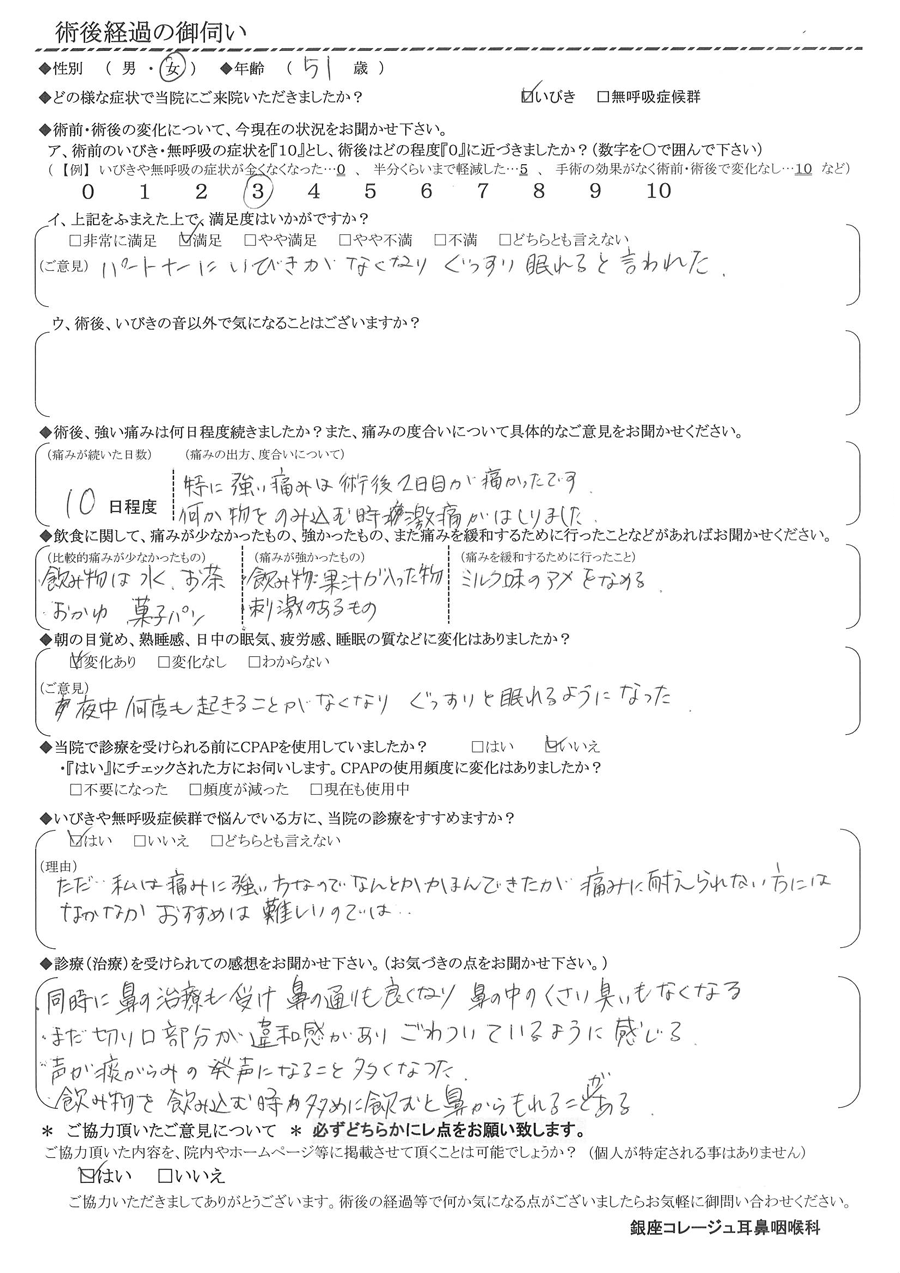 術後経過の御伺い
◆性別 ( 男 ・ 女 ) ◆年齢 ( 51 歳 )
◆どの様な症状で当院にご来院いただきましたか? ☑いびき □無呼吸症候群
◆術前・術後の変化について、今現在の状況をお聞かせ下さい。
ア、術前のいびき・無呼吸の症状を『10』とし、術後はどの程度『0』に近づきましたか?(数字を○で囲んで下さい)
(【例】 いびきや無呼吸の症状が全くなくなった…0 、 半分くらいまで軽減した…5 、 手術の効果がなく術前・術後で変化なし…10 など)
0 1 2 3 4 5 6 7 8 9 10
イ、上記をふまえた上で、満足度はいかがですか?
□非常に満足 ☑満足 □やや満足 □やや不満 □不満 □どちらとも言えない
(ご意見) パートナーにいびきがなくなり ぐっすり眠れると言われた.
ウ、術後、いびきの音以外で気になることはございますか?
◆術後、強い痛みは何日程度続きましたか?また、痛みの度合いについて具体的なご意見をお聞かせください。
(痛みが続いた日数) (痛みの出方、度合いについて)
特に強い痛みは術後2日目が痛かったです.
10 日程度 何か物をのみ込む時 激痛がはしりました.
◆飲食に関して、痛みが少なかったもの、強かったもの、また痛みを緩和するために行ったことなどがあればお聞かせください。
(比較的痛みが少なかったもの) (痛みが強かったもの) (痛みを緩和するために行ったこと)
・飲み物は水、お茶 飲み物:果汁が入った物 ミルク味のアメをなめる.
・おかゆ 菓子パン 刺激のあるもの
◆朝の目覚め、熟睡感、日中の眠気、疲労感、睡眠の質などに変化はありましたか?
☑変化あり □変化なし □わからない
(ご意見)
夜中何度も起きることがなくなり ぐっすりと眠れるようになった.
◆当院で診療を受けられる前にCPAPを使用していましたか? □はい ☑いいえ
・『はい』にチェックされた方にお伺いします。CPAPの使用頻度に変化はありましたか?
□不要になった □頻度が減った □現在も使用中
◆いびきや無呼吸症候群で悩んでいる方に、当院の診療をすすめますか?
☑はい □いいえ □どちらとも言えない
(理由)
ただ… 私は痛みに強い方なのでなんとかがまんできたが 痛みに耐えられない方には
なかなか おすすめは 難しいのでは‥
◆診療(治療)を受けられての感想をお聞かせ下さい。(お気づきの点をお聞かせ下さい。)
・同時に鼻の治療も受け 鼻の通りも良くなり 鼻の中のくさい臭いもなくなる
・まだ切り口部分が違和感があり ごわついているように感じる.
・声が痰がらみの発声になること多くなった.
・飲み物を飲み込む時 多めに飲むと鼻からもれることがある.
* ご協力頂いたご意見について * 必ずどちらかにレ点をお願い致します。
ご協力頂いた内容を、院内やホームページ等に掲載させて頂くことは可能でしょうか? (個人が特定される事はありません)
☑はい □いいえ
ご協力いただきましてありがとうございます。術後の経過等で何か気になる点がございましたらお気軽に御問い合わせください。
銀座コレージュ耳鼻咽喉科